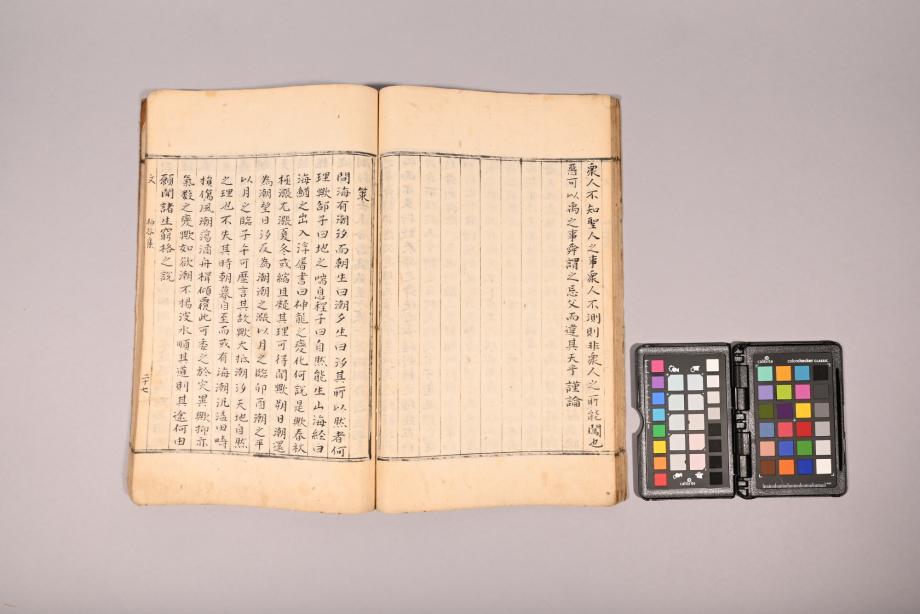 衆人不知聖人之事衆人不測則非衆人之所能闖也
焉可以禹之事舜謂之忘父而違其天乎謹論
策
問海有潮汐而朝生曰潮夕生曰汐其所以然者何
理歟邵子曰地之喘息程子曰自然能生山海經曰
海鰌之出入浮屠書曰神龍之變化何說是歟春秋
極漲尤漲夏冬或縮且疑其理可得聞歟朔日潮還
為潮望日汐反為潮潮之漲以月之臨卯酉潮之平
以月之臨子午可歷言其故歟大抵潮汐天地自然
之理也不失其時朝暮自至而或有海潮汎溢田疇
損傷風潮蕩潏舟楫傾覆此可委之於灾異歟抑亦
氣数之變歟如欲潮不揚波水順其道則其途何由
願聞諸生窮格之說
文
二十七
calibrite
colorchecker CLASSIC
calibrite